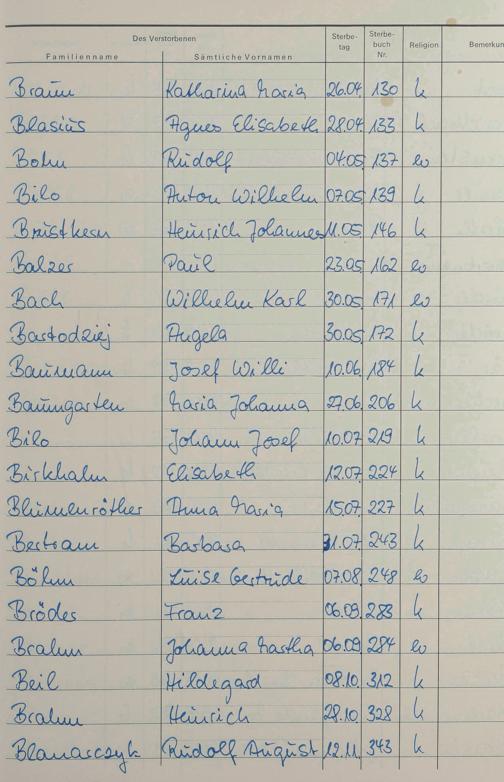 Des Verstorbenen Sterbe- Sterbe-
Familienname Sämtliche Vornamen tag buch Nr. Religion Bemerkun
Braun Katharina Maria 26.04. 130 k
Blasius Agnes Elisabeth 28.04. 133 k
Bohn Rudolf 04.05. 137 ev
Bilo Anton Wilhelm 07.05. 139 k
Brüstkern Heinrich Johannes 11.05. 146 k
Balzer Paul 23.05. 162 ev
Bach Wilhelm Karl 30.05. 171 ev
Bartodziej Angela 30.05. 172 k
Baumann Josef Willi 10.06. 184 k
Baumgarten Maria Johanna 27.06. 206 k
Bilo Johann Josef 10.07. 219 k
Birkhahn Elisabeth 12.07. 224 k
Blumenröther Anna Maria 15.07. 227 k
Bertram Barbara 31.07. 243 k
Böhm Luise Gertrude 07.08. 248 ev
Brödes Franz 06.09. 283 k
Brahm Johanna Martha 06.09. 284 ev
Beil Hildegard 08.10. 312 k
Brahm Heinrich 28.10. 328 k
Blanarczyk Rudolf August 12.11. 343 k